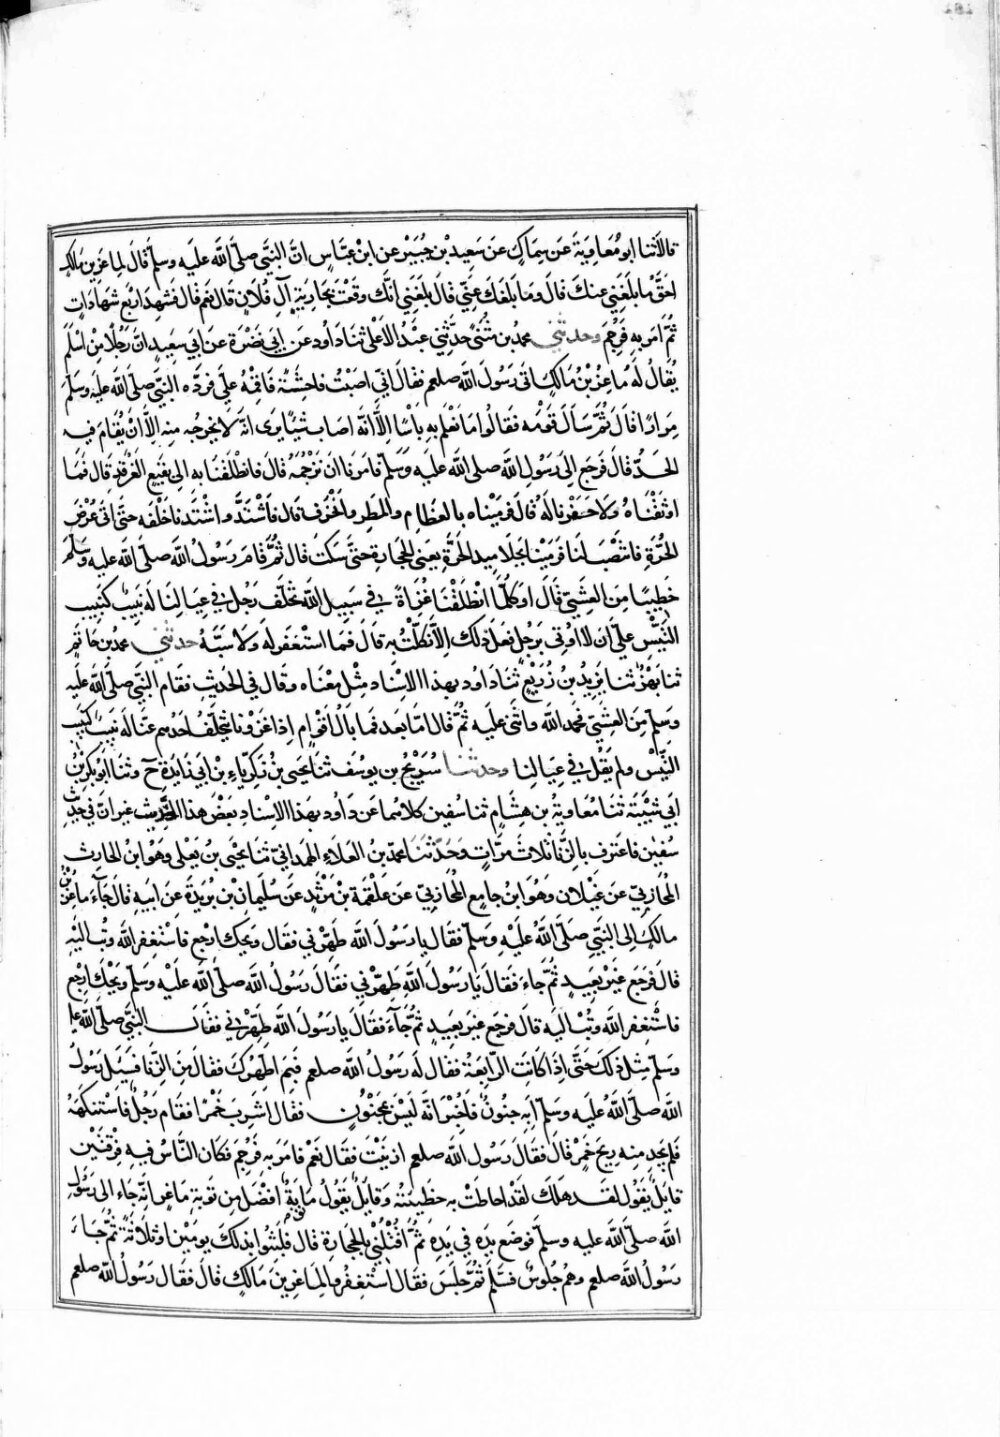 قالا ثنا ابو مُعَاوِيَة عَن سِمَاكٍ عَن سَعِيد بْن جُبَيْر عَن ابْن عَبَّاسٍ انَّ النَّبيّ صَلّى اللّه عَلَيه وسلّم قَال لِمَاعِزِ بن مَالِكٍ
احَقٌّ مَا بلغَنِي عنكَ قَالَ وَمَا بَلَغَكَ عَنِّي قَالَ بلَغَنِي انَّكَ وقعْتَ بجَاريَةِ آلِ فُلَانٍ قَال نَعَم قال فَشهِدَ اربع شهَادَاتٍ
ثُمَّ امَر بهِ فَرُجِمَ وحدثني محمد بن مُثنّى حَدَّثَنِي عَبْدُ الاعْلى ثنا دَاود عَن ابي نَضْرَة عَن ابي سَعِيدٍ انَّ رَجُلًا مِنْ اسْلَمَ
يُقَالُ لَهُ مَاعِزُ بْنُ مَالِكٍ اتى رَسُولَ اللّه صلعم فقَال انّي اصَبْتُ فَاحِشَةً فَاَقِمْهُ عَلَيَّ فَردَّه النبيّ صَلّى اللّه عَليه وسَلم
مِرَارًا قَالَ ثُمَّ سَأَلَ قَوْمَه فقَالُوا مَا نَعْلَم بهِ بَأْسًا اِلَّا انَّهُ اصَابَ شَيْئًا يرَى انّه لَا يخرِجُه مِنهِ اِلّا انْ يُقَامَ فيهِ
الحَدُّ قالَ فرَجَع الى رَسُولِ اللّه صلى اللّه عليه وَسَلّم فَأمَرنَا ان نَرْجُمَهُ قَالَ فانطَلَقنَا بهِ الى بقِيعِ الغَرْقَدِ قَال فمَا
اوثَقْنَاهُ وَلَا حَفَرْنَا لَهُ قَالَ فَرَمَيْنَاه بالعِظَامِ والمَطَرِ والخَزَفِ قَال فَاشْتَدَّ واشْتدَدنَا خَلفَه حَتّى اتى عُرْضَ
الحَرَّةِ فَانتصَبَ لَنَا فَرمَيْنَا بجَلَاميدِ الحَرَّةِ يعني الحجَارة حتى سَكتَ قال ثُمَّ قَامَ رَسولُ اللّه صلّى اللّه عليه وسَلّم
خَطِيبًا مِنَ العَشِيّ قَالَ اوَكُلّمَا انْطَلَقْنَا غُزَاةً في سَبيل اللّه تخَلّف رَجُل في عِيالِنَا لَه نَبِيبٌ كنَبِيب
التّيْسِ عَلَيّ ان لَا اُوتى بِرَجُل فَعَلَ ذَلِك اِلّا نَكّلْتُ بهِ قَالَ فمَا استَغفَر لَه وَلَا سَبَّهُ حدثني محمد بن حَاتم
ثنا بَهْزٌ ثنا يَزِيْدُ بن زُرَيْعٍ ثنَا دَاود بهذا الاسْنَاد مِثْل مَعْنَاه وقَال في الحَديثِ فقَام النبي صَلّى اللّه عَليه
وسَلّم مِنَ العشيّ فحَمِدَ اللّه واثنَى عَليه ثُمَّ قال امّا بَعد فمَا بَالُ اقْوَامٍ اِذَا غَزَوْنَا تخَلّفَ احَدهم عنّا لَهُ نَبيبٌ كنَبيب
التّيْس ولم يقُل في عِيَالنا وحدثنا سُرَيْجُ بن يوسُف ثنا يحيى بْن زَكَريّاء بْن ابي زَايدَة ح وثنا ابو بكر بْنُ
ابي شَيْبَة ثنا مُعَاوية بن هِشَامٍ ثنا سُفين كلاهمَا عَن دَاود بهذا الاسْنَادِ بَعْضَ هذا الحَديث غير انّ في حَدِيْثِ
سُفين فاعتَرف بالزّنَا ثلاث مَرّاتٍ وحَدَّثنا محمد بن العَلاءِ الهمداني ثنا يَحْيى بن يَعْلى وهْوَ ابنُ الحَارِث
المُحَاربيّ عَن غَيْلان وهْوَ ابْنُ جَامعٍ المُحَاربيّ عَن علقمَة بْن مَرْثدٍ عَن سُليمَان بْن بُرَيدَةَ عَن ابيهِ قَالَ جَاءَ مَاعِزُ بْنُ
مالكٍ الى النّبيّ صَلّى اللّهُ عَلَيْهِ وسَلّمَ فقَال يا رَسُولَ اللّه طهِّرْني فقَال وَيحَكَ ارْجِع فَاسْتَغفِرِ اللّه وتُب الَيْهِ
قالَ فرَجَع غَيْر بَعيدٍ ثُمَّ جَاءَ فقَالَ يَا رَسُولَ اللّهِ طهِّرْني فقَالَ رَسُولُ اللّه صَلّى اللّه عَلَيْه وسَلّم وَيْحَكَ ارْجِع
فاسْتَغفِر اللّه وتُبْ اليَه قَال فرجَع غيرَ بَعِيدٍ ثُمَّ جَآءَ فقَالَ يا رَسُولَ اللّه طَهِّرْني فقَالَ النبيّ صلّى اللّه علَيه
وسَلّم مِثل ذَلكَ حَتَّى اِذَا كانَتِ الرّابعَةُ فقَال لَه رَسُولُ اللّه صلعم فبِمَ اطَهِّرُكَ فقَالَ مِنَ الزّنَا فَسَئلَ رَسُولُ
اللّه صَلّى اللّه عَليه وسَلّم ابهِ جُنُونٌ فَاُخْبِرَ انّه لَيْسَ بمَجْنُونٍ فقَال اشَرِبَ خَمْرًا فقَام رَجُلٌ فَاسْتَنكهَهُ
فلم يجد منه ريحَ خَمْرٍ قالَ فقَالَ رَسُول اللّه صلعم ازنَيْتَ فقَال نَعَمْ فامَر بهِ فَرُجِمَ فكَان النَّاسُ فيهِ فِرْقتَيْن
قايلٌ يَقُولُ لقَد هَلَكَ لقَدْ احَاطَتْ بهِ خَطِيئَتُهُ وقَايلٌ يَقُولُ مَا تَوْبَةٌ افْضَلَ مِن تَوبَةِ مَاعِزٍ انّهُ جَاءَ الى رَسُولِ
اللّه صلّى اللّه عليه وسلّم فَوضَع يدَه في يَدِهِ ثُمَّ اقْتُلْنِيْ بالحجَارَةِ قَال فلَبِثُوا بذلكَ يومَيْن او ثلَاثَةً ثُمَّ جَاءَ
رَسُولُ اللّه صلعم وهُمْ جُلُوسٌ فسَلّمَ ثُمَّ جَلَسَ فقَال اسْتغفِرُوا لمَاعِزِ بن مَالِكٍ قالَ فقَالَ رَسُولُ اللّه صلعم